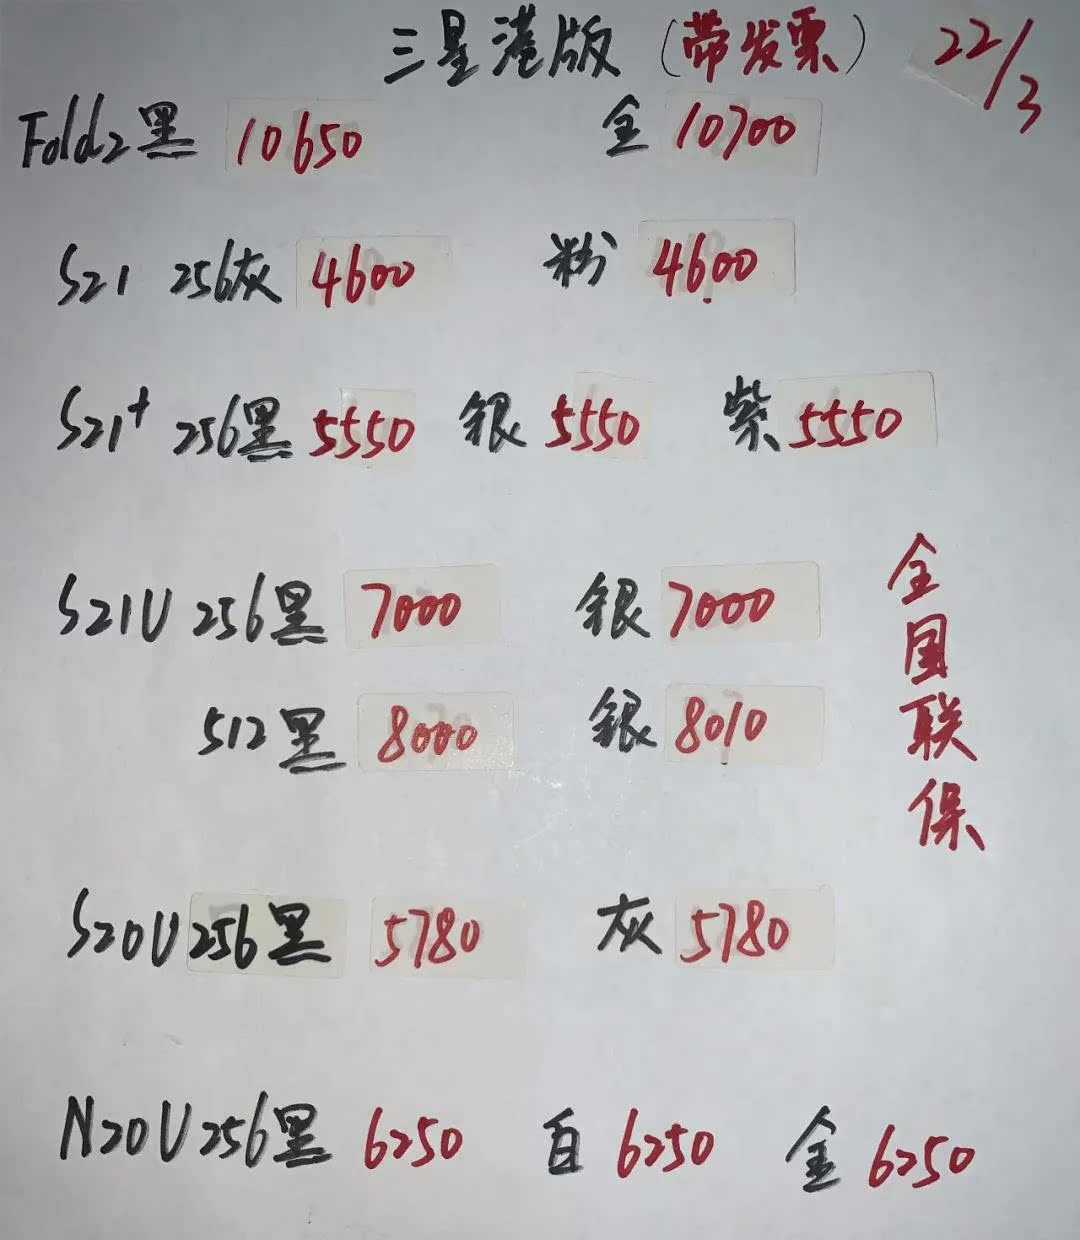 三星港版（带发票） 22/3
Fold2黑 10650 金 10700
S21 256灰 4600 粉 4600
S21+ 256黑 5550 银 5550 紫 5550
S21U 256黑 7000 银 7000
512黑 8000 银 8010
全国联保
S20U 256黑 5780 灰 5780
N20U 256黑 6250 白 6250 金 6250